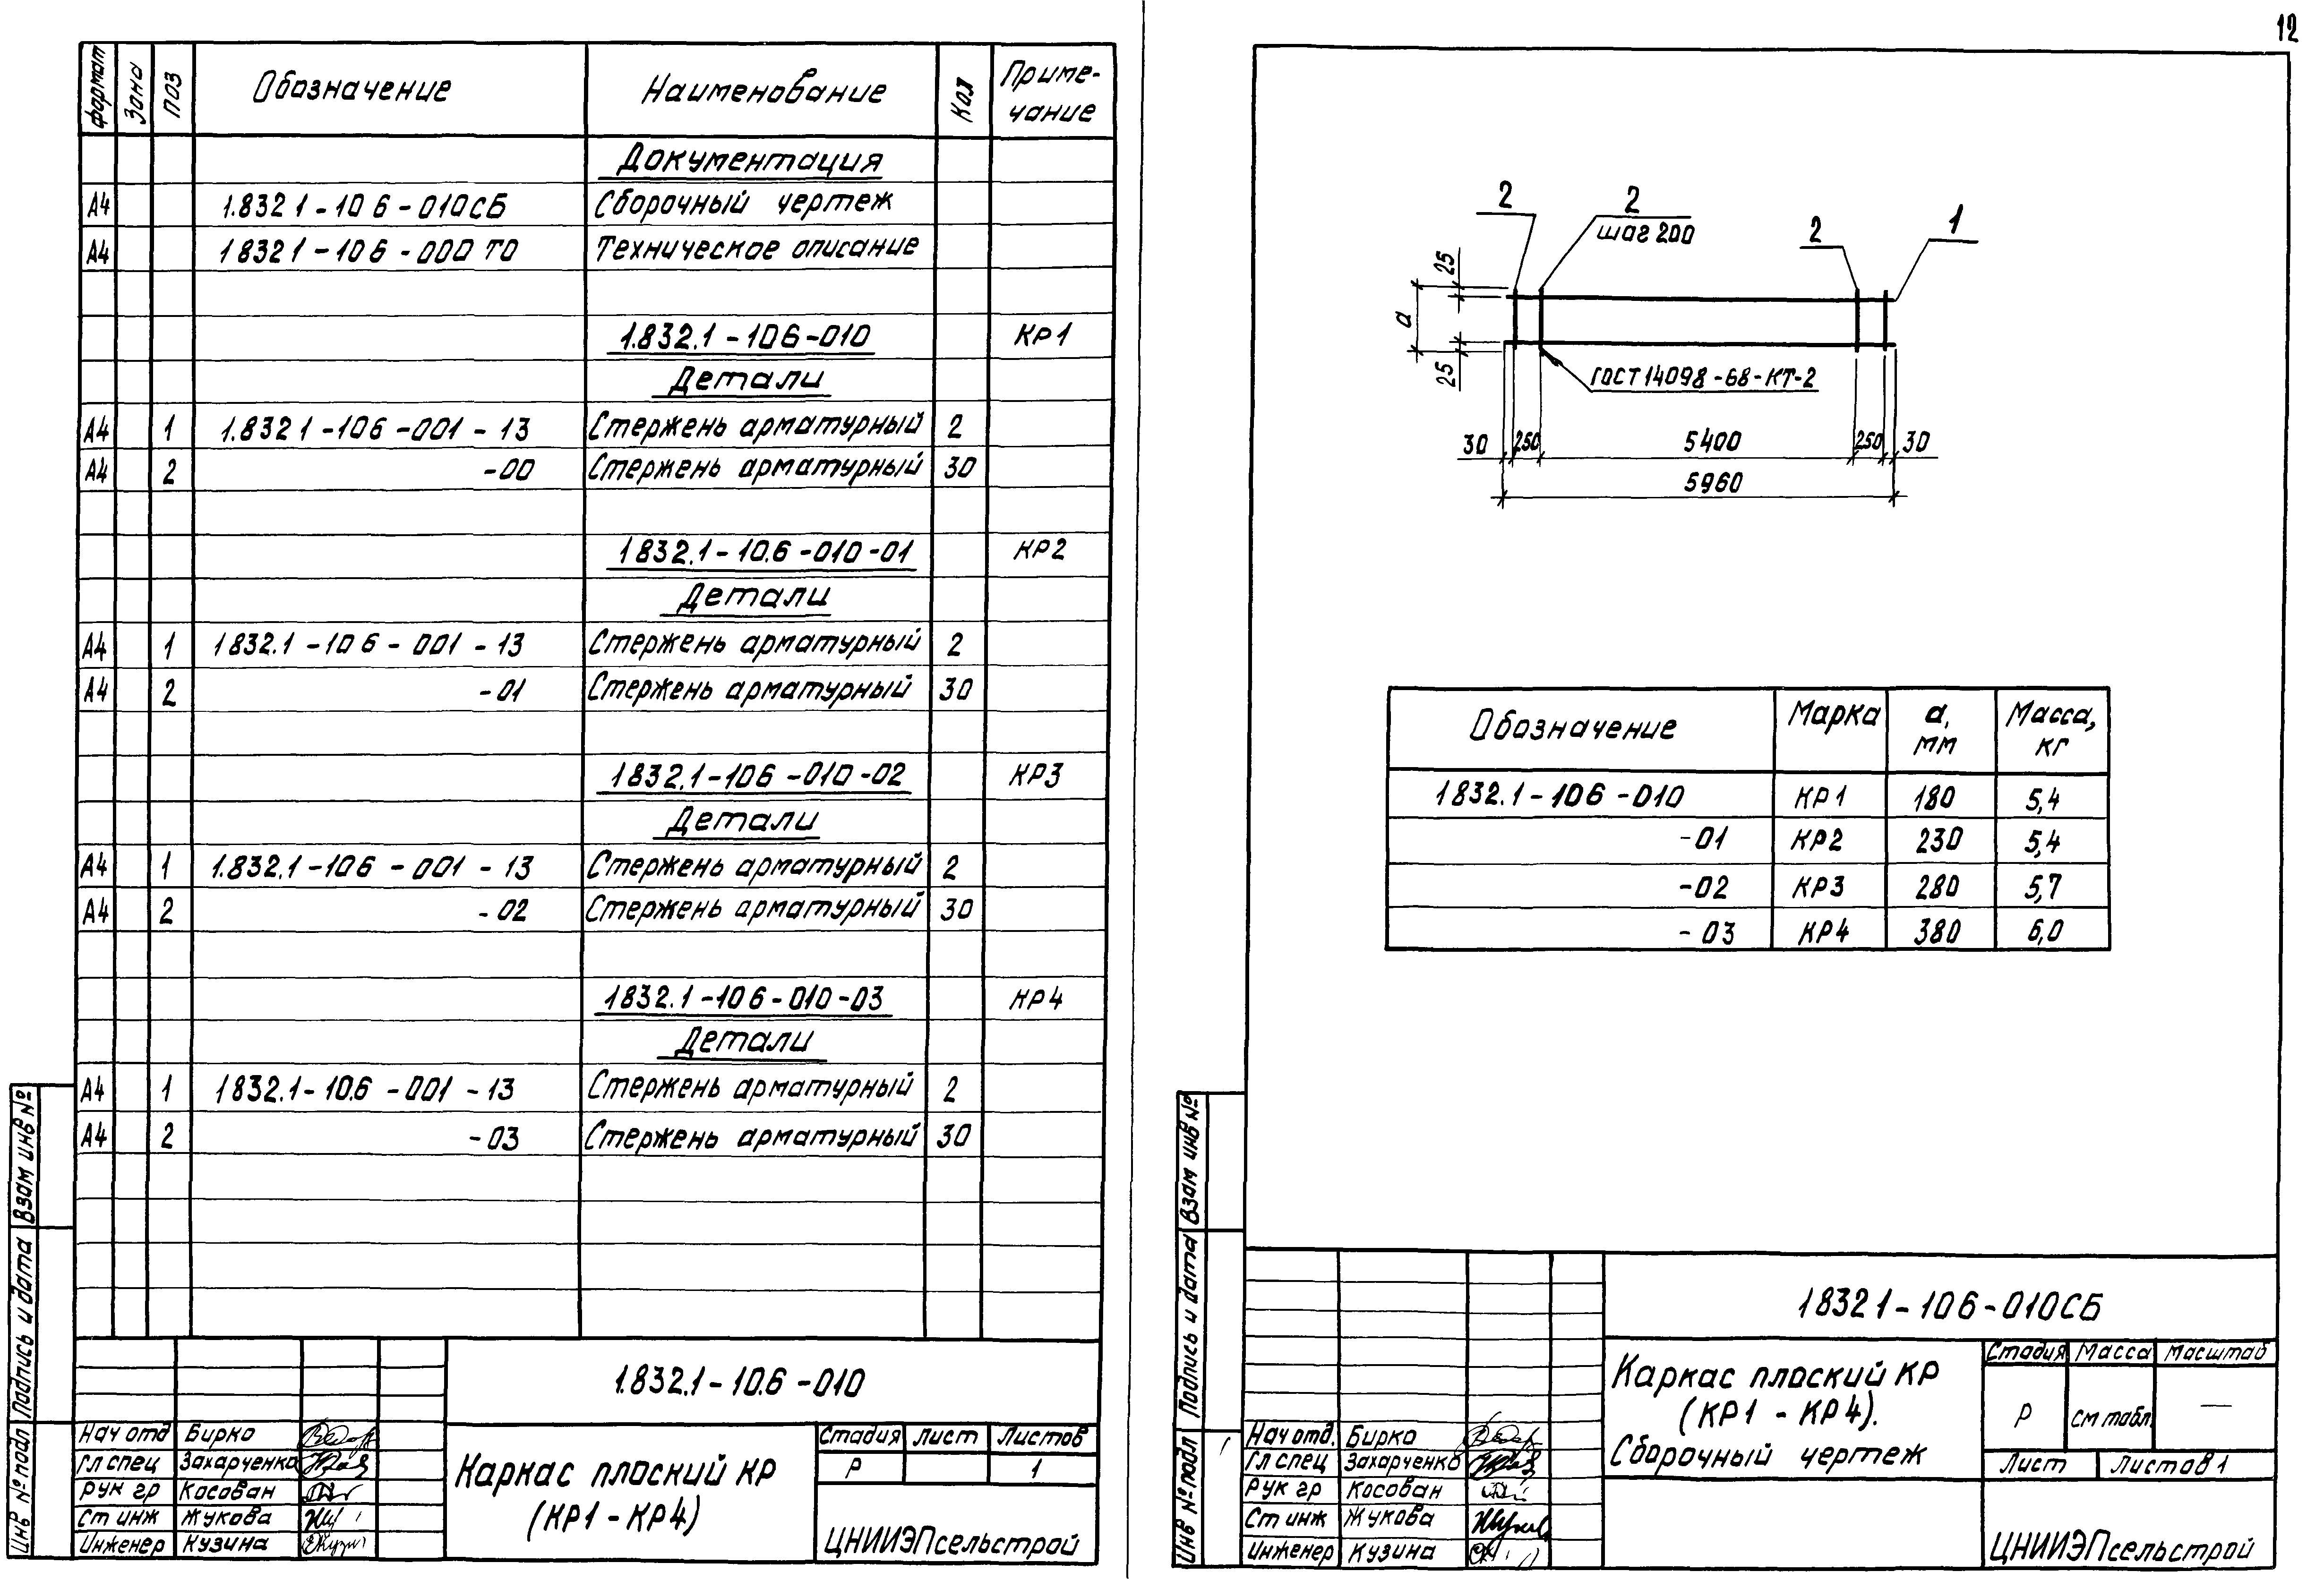 12
формат Зона поз Обозначение Наименование Кол Приме-
чание
Документация
А4 1.832 1-10 6-010СБ Сборочный чертеж
А4 1832 1-10 6-000 ТО Техническое описание
1.832.1-106-010 КР1
Детали
А4 1 1.832 1-106-001-13 Стержень арматурный 2
А4 2 -00 Стержень арматурный 30
1832.1-10.6-010-01 КР2
Детали
А4 1 1832.1-10 6-001-13 Стержень арматурный 2
А4 2 -01 Стержень арматурный 30
1832.1-106-010-02 КР3
Детали
А4 1 1.832.1-106-001-13 Стержень арматурный 2
А4 2 -02 Стержень арматурный 30
1832.1-106-010-03 КР4
Детали
А4 1 1832.1-10.6-001-13 Стержень арматурный 2
А4 2 -03 Стержень арматурный 30
Инв № подл Подпись и дата Взам инв №
1.832.1-10.6-010
Нач отд Бирко
Гл спец Захарченко
Рук гр Косован
Ст инж Жукова
Инженер Кузина
Каркас плоский КР
(КР1-КР4)
Стадия Лист Листов
Р 1
ЦНИИЭПсельстрой
2 2 2 1
шаг 200
25
а
25
ГОСТ 14098-68-КТ-2
30 250 5400 250 30
5960
Обозначение Марка а, мм Масса, кг
1832.1-106-010 КР1 180 5,4
-01 КР2 230 5,4
-02 КР3 280 5,7
-03 КР4 380 6,0
Инв № подл Подпись и дата Взам инв №
1832 1-106-010СБ
Нач отд. Бирко
Гл спец Захарченко
Рук гр Косован
Ст инж Жукова
Инженер Кузина
Каркас плоский КР
(КР1-КР4).
Сборочный чертеж
Стадия Масса Масштаб
Р см табл. —
Лист Листов 1
ЦНИИЭПсельстрой